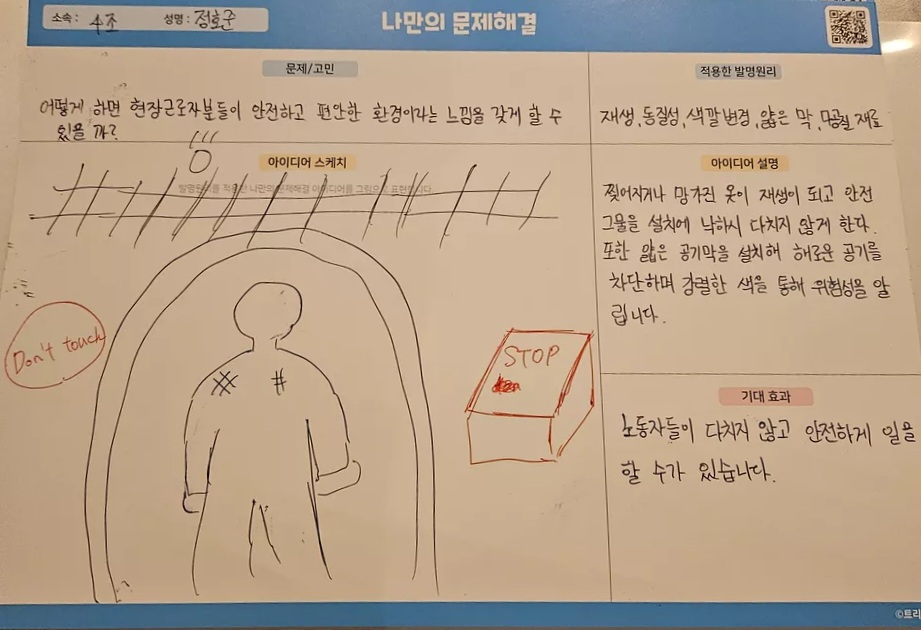 소속 : 4조 성명 : 정호준
나만의 문제해결
문제/고민
어떻게 하면 현장근로자분들이 안전하고 편안한 환경이라는 느낌을 갖게 할 수
있을 까?
적용한 발명원리
재생, 동질성, 색깔변경, 얇은 막, 다공질 재료
아이디어 스케치
발명원리를 적용한 나만의 문제해결 아이디어를 그림으로 표현합니다.
Don't touch
STOP
아이디어 설명
찢어지거나 망가진 옷이 재생이 되고 안전
그물을 설치에 낙하시 다치지 않게 한다.
또한 얇은 공기막을 설치해 해로운 공기를
차단하며 강렬한 색을 통해 위험성을 알
립니다.
기대 효과
노동자들이 다치지 않고 안전하게 일을
할 수가 있습니다.
©트리